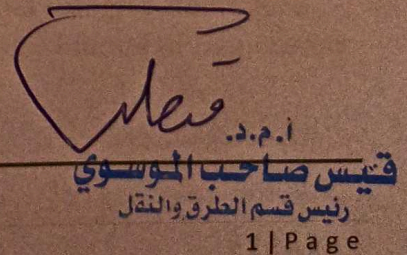 أ.م.د.
قيس صاحب الموسوي
رئيس قسم الطرق والنقل
1 | P a g e